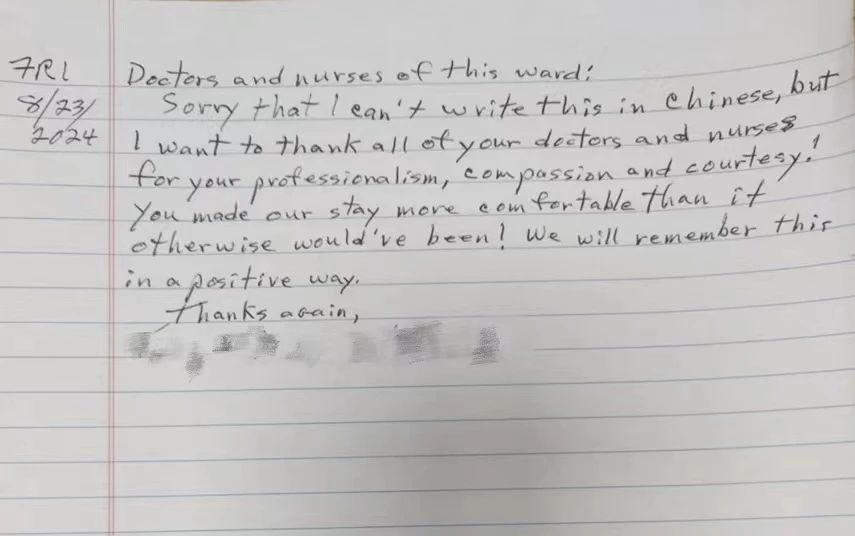 FRI
8/23/
2024
Doctors and nurses of this ward:
Sorry that I can't write this in Chinese, but
I want to thank all of your doctors and nurses
for your professionalism, compassion and courtesy!
You made our stay more comfortable than it
otherwise would've been! We will remember this
in a positive way.
Thanks again,